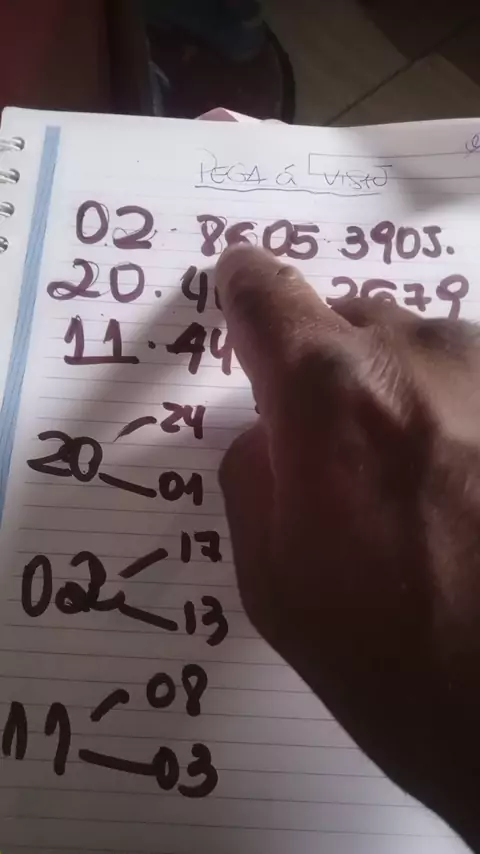 PEGA a VISÃO
02. 8605. 3905.
20. 2679
11. 44
20 24
01
02 17
13
11 08
03